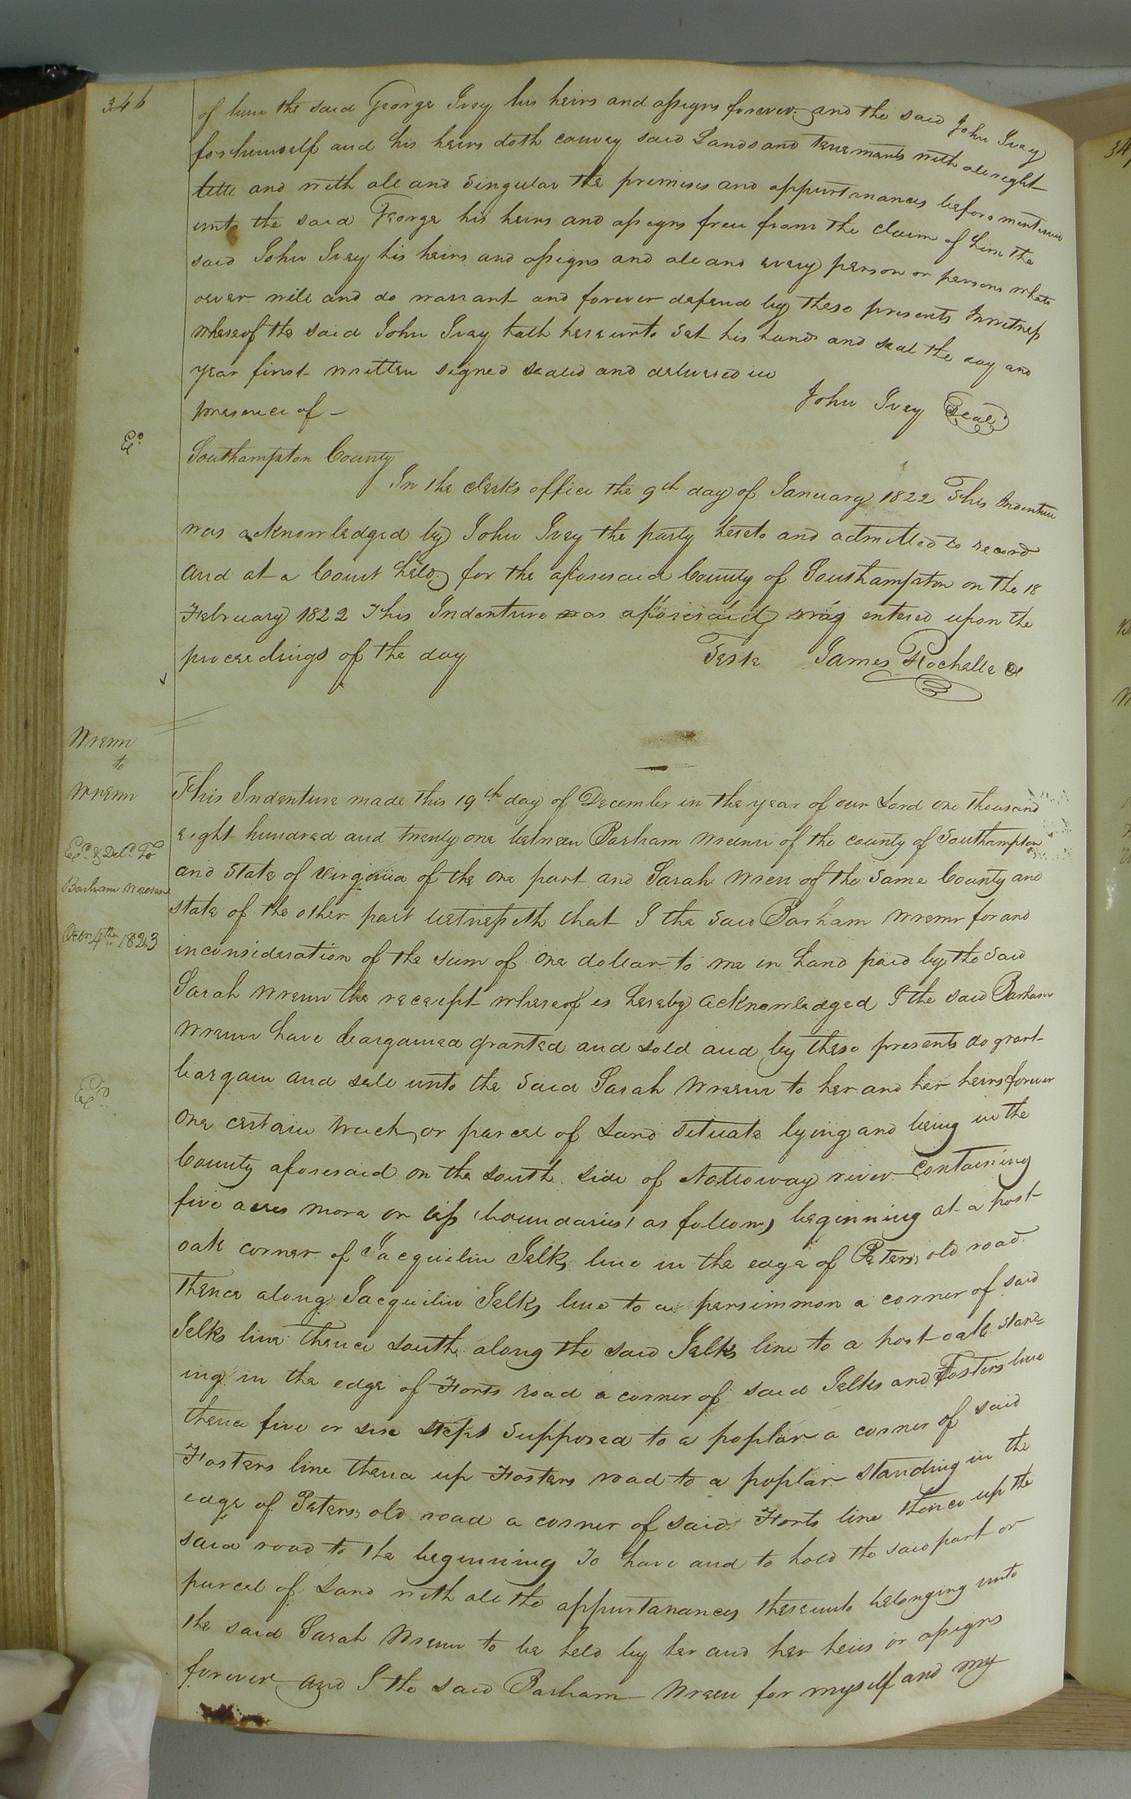 346
of him the said George Ivey his heirs and assigns forever and the said John Ivey
for himself and his heirs doth convey said Lands and tenements with all right
title and with all and singular the premises and appurtenances before mentioned
unto the said George his heirs and assigns free from the claim of him the
said John Ivey his heirs and assigns and all and every person or persons whats
oever will and do warrant and forever defend by these presents In witness
whereof the said John Ivey hath hereunto Set his hand and seal the day and
year first written signed sealed and delivered in
presence of -
John Ivey Seal
Southampton County
In the clerks office the 9th day of January 1822 This Indenture
was acknowledged by John Ivey the party hereto and admitted to record
and at a Court held for the aforesaid County of Southampton on the 18
February 1822 This Indenture was aforesaid was entered upon the
proceedings of the day
Teste James Rochelle
Wrenn
to
Wrenn
Ex.d & Del.d To
Barham Wrenn
Octr 4th 1823
This Indenture made this 19th day of December in the year of our Lord one thousand
eight hundred and twenty one between Barham Wrenn of the county of Southampton
and State of Virginia of the one part and Sarah Wren of the Same County and
state of the other part witnesseth that I the Said Barham Wrenn for and
inconsideration of the sum of one dollar to me in hand paid by the Said
Sarah Wrenn the receipt whereof is hereby acknowledged I the said Barham
Wrenn have bargained granted and sold and by these presents do grant
bargain and sell unto the Said Sarah Wrenn to her and her heirs forever
one certain track or parcel of Land Situate lying and being in the
County aforesaid on the south side of Nottoway river containing
five acres more or less (boundaries) as follows, beginning at a post
oak corner of Jacquilin Jelks line in the edge of Peters, old road
Thence along Jacquilin Jelks line to a persimmon a corner of said
Jelks line thence south along the said Jelks line to a post oak stand=
ing in the edge of Forts road a corner of said Jelks and Fosters line
thence five or six steps Supposed to a poplar a corner of said
Fosters line thence up Fosters road to a poplar standing in the
edge of Peters, old road a corner of said Forts line thence up the
said road to the beginning To have and to hold the said part or
parcel of Land with all the appurtanances thereunto belonging unto
the said Sarah Wrenn to be held by her and her heirs or assigns
forever and I the said Barham Wrenn for myself and my